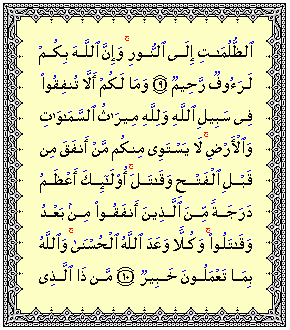 ٱلظُّلُمَـٰتِ إِلَى ٱلنُّورِ ۚ وَإِنَّ ٱللَّهَ بِكُمْ
لَرَءُوفٌ رَّحِيمٌ ﴿٩﴾ وَمَا لَكُمْ أَلَّا تُنفِقُوا۟
فِى سَبِيلِ ٱللَّهِ وَلِلَّهِ مِيرَٰثُ ٱلسَّمَـٰوَٰتِ
وَٱلْأَرْضِ ۚ لَا يَسْتَوِى مِنكُم مَّنْ أَنفَقَ مِن
قَبْلِ ٱلْفَتْحِ وَقَـٰتَلَ ۚ أُو۟لَـٰٓئِكَ أَعْظَمُ
دَرَجَةً مِّنَ ٱلَّذِينَ أَنفَقُوا۟ مِنۢ بَعْدُ
وَقَـٰتَلُوا۟ ۚ وَكُلًّا وَعَدَ ٱللَّهُ ٱلْحُسْنَىٰ ۚ وَٱللَّهُ
بِمَا تَعْمَلُونَ خَبِيرٌ ﴿١٠﴾ مَّن ذَا ٱلَّذِى